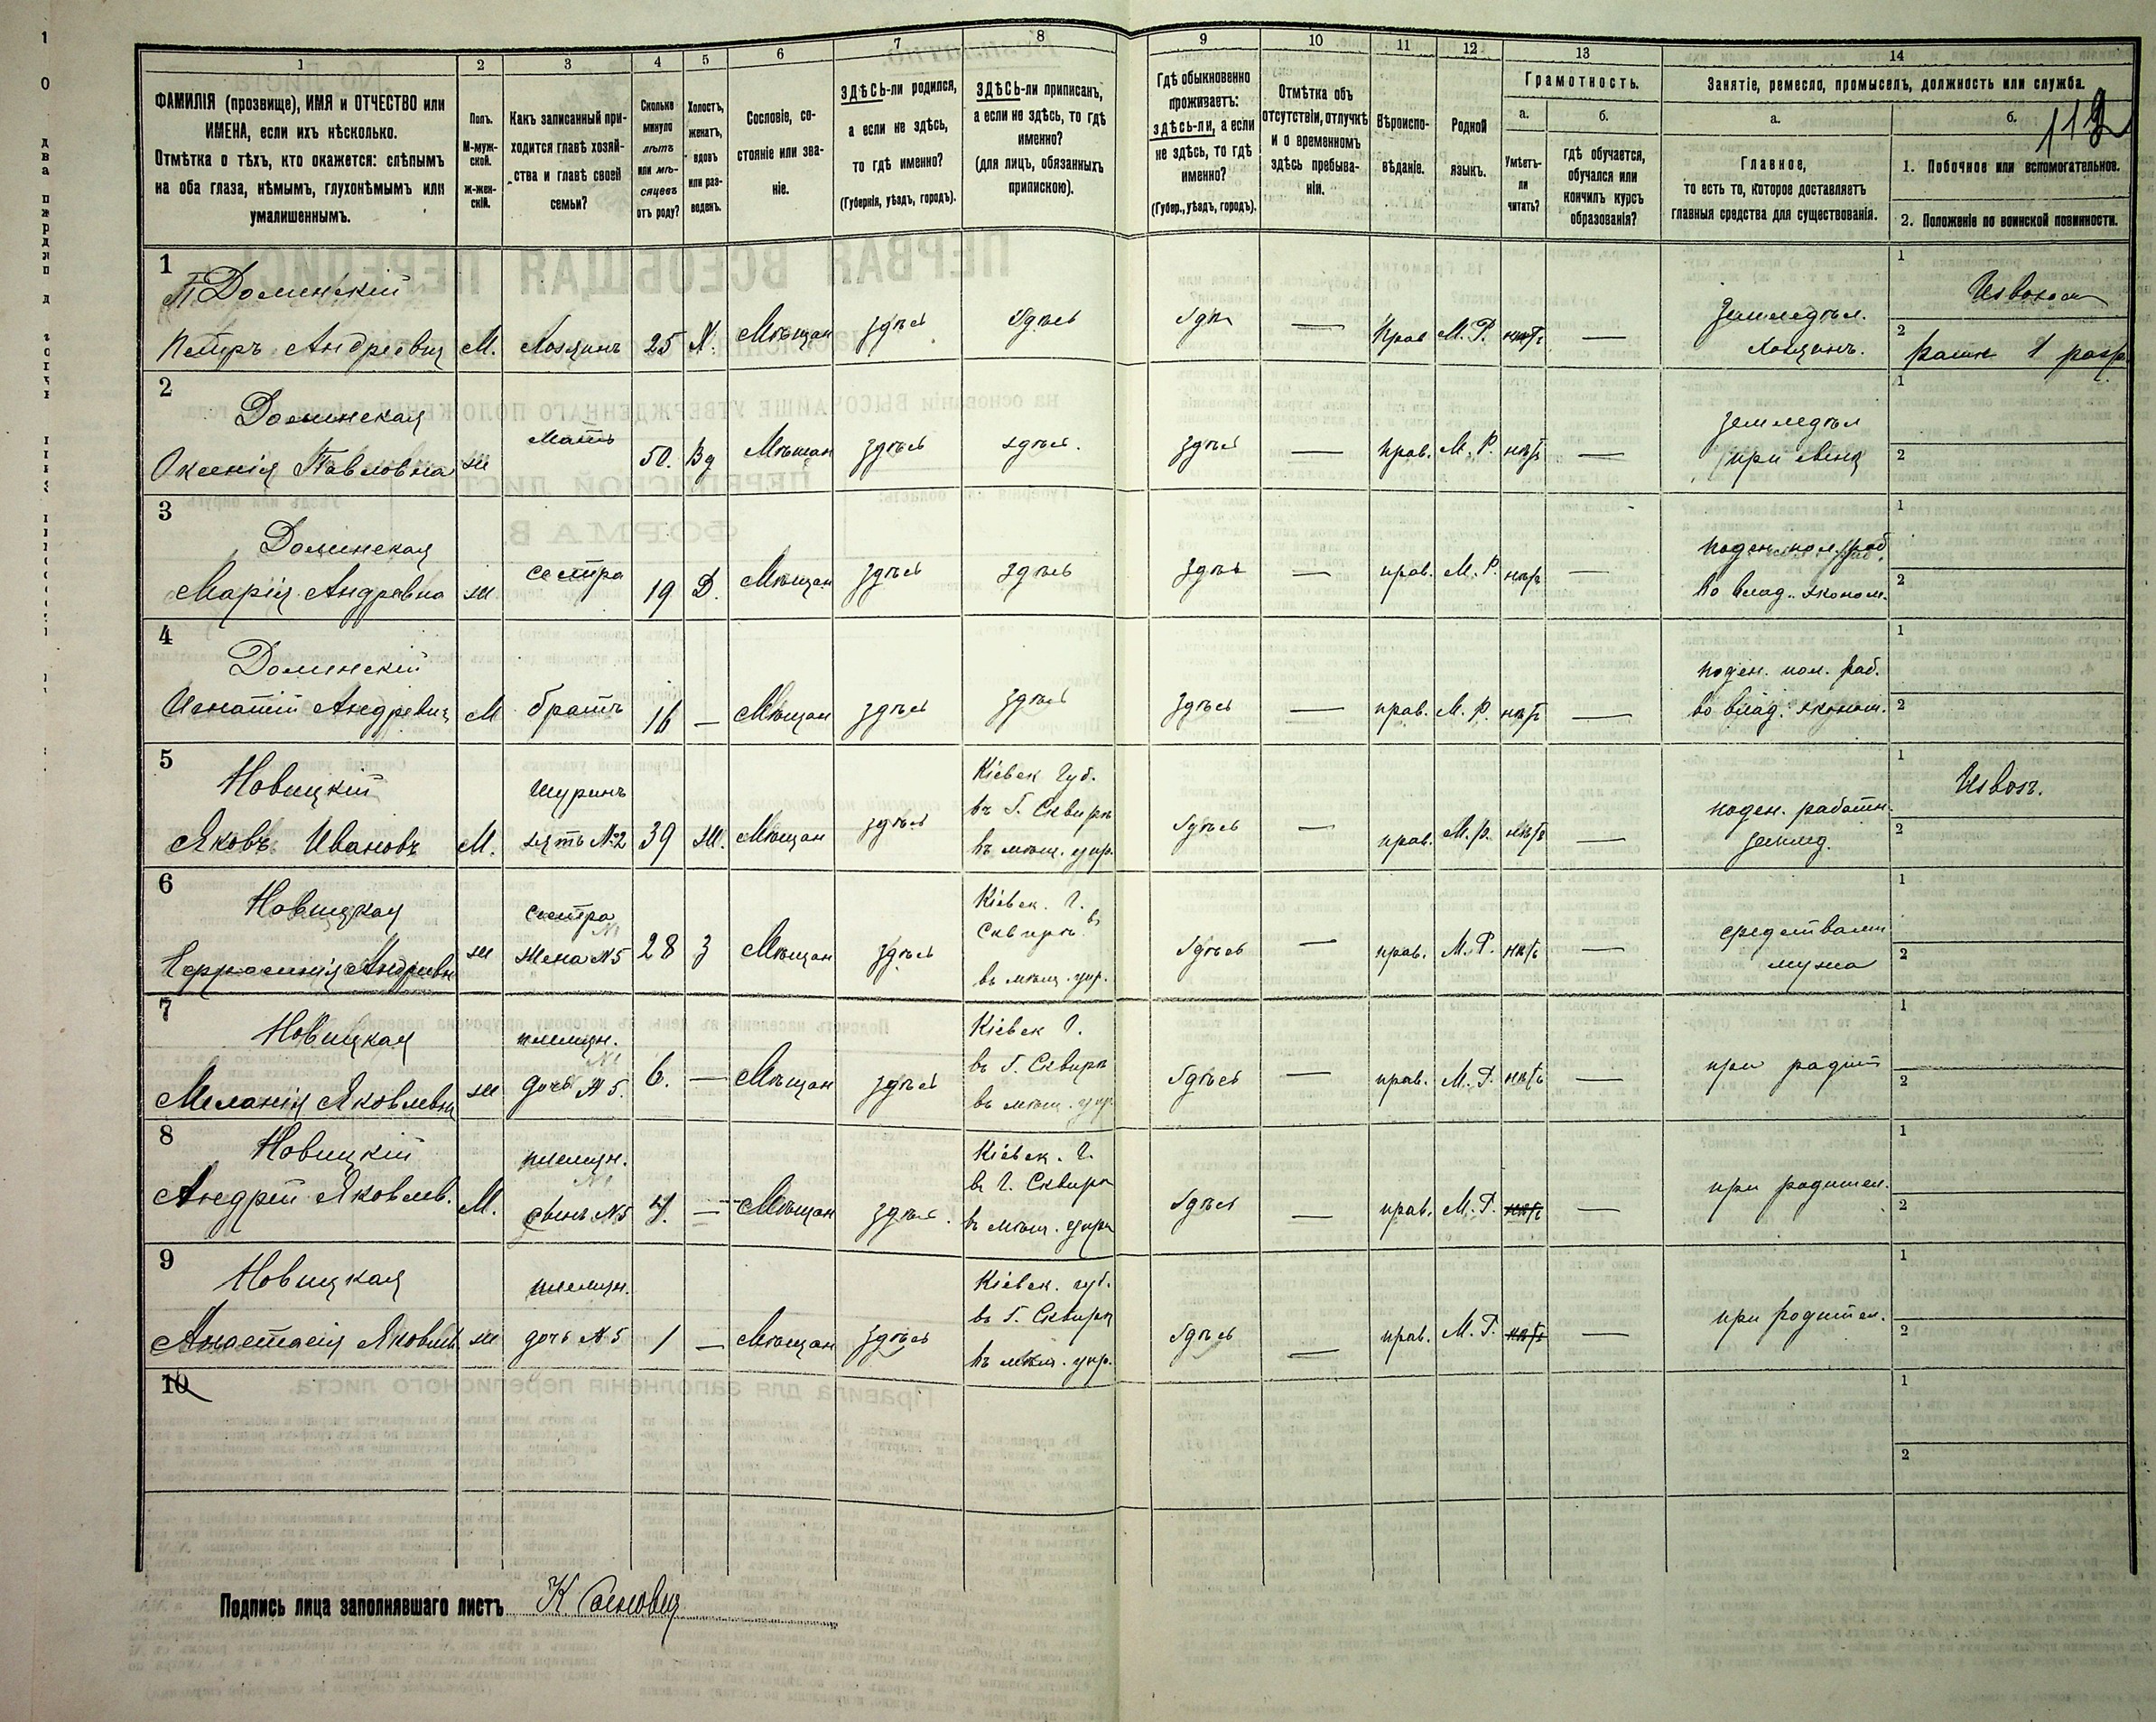 1 2 3 4 5 6 7 8 9 10 11 12 13 14
ФАМИЛІЯ (прозвище), ИМЯ и ОТЧЕСТВО или
ИМЕНА, если ихъ нѣсколько.
Отмѣтка о тѣхъ, кто окажется: слѣпымъ
на оба глаза, нѣмымъ, глухонѣмымъ или
умалишеннымъ.
Полъ.
М-муж-
ской.
ж-жен-
скій.
Какъ записанный при-
ходится главѣ хозяй-
ства и главѣ своей
семьи?
Сколько
минуло
лѣтъ
или мѣ-
сяцевъ
отъ роду?
Холостъ,
женатъ,
вдовъ
или раз-
веденъ.
Сословіе, со-
стояніе или зва-
ніе.
ЗДѢСЬ-ли родился,
а если не здѣсь,
то гдѣ именно?
(Губернія, уѣздъ, городъ).
ЗДѢСЬ-ли приписанъ,
а если не здѣсь, то гдѣ
именно?
(для лицъ, обязанныхъ
припискою).
Гдѣ обыкновенно
проживаетъ:
здѣсь-ли, а если
не здѣсь, то гдѣ
именно?
(Губер., уѣздъ, городъ).
Отмѣтка объ
отсутствіи, отлучкѣ
и о временномъ
здѣсь пребыва-
ніи.
Вѣроиспо-
вѣданіе.
Родной
языкъ.
Грамотность.
а.
Умѣетъ-
ли
читать?
б.
гдѣ обучается,
обучался или
кончилъ курсъ
образованія?
Занятіе, ремесло, промыселъ, должность или служба.
а.
Главное,
то есть то, которое доставляетъ
главныя средства для существованія.
б.
1. Побочное или вспомогательное.
2. Положеніе по воинской повинности.
1
Доминскій
Петръ Андріевич М. Хозяинъ 25 Х. Мѣщан здѣсь здѣсь здѣ — прав М. Р. нѣтъ —
Земледѣл.
хозяинъ.
1
2 1 разр.
2
Доминская
Оксенія Павловна ж мать 50. Вд Мѣщан здѣсь здѣся. здѣся — прав. М. Р. нѣтъ —
земледѣл
при
1
2
3
Доминская
Марія Андревна ж сестра 19 Д. Мѣщан здѣсь здѣсь здѣсь — прав. М. Р. нѣтъ —
поден. пол. раб
во влад. эконом.
1
2
4
Доминскій
Игнатій Андревич М братъ 16 — Мѣщан здѣсь здѣсь здѣсь — прав. М. Р. нѣтъ —
поден. пол. раб.
во влад. эконом.
1
2
5
Новицкій
Яковъ Ивановъ М.
Шуринъ
зять №2 39 ж. Мѣщан здѣсь
Кіевск Губ.
въ Г. Сквирѣ
въ мѣщ. упр.
здѣсь — прав. М. Р. нѣтъ —
поден. работн.
землед.
1 Извоз.
2
6
Новицкая
Андревн ж
сестра
№1
жена №5 28 З Мѣщан здѣсь
Кіевск. Г.
въ Сквирѣ
въ мѣщ. упр.
здѣсь — прав. М. Р. нѣтъ —
средствами
мужа
1
2
7
Новицкая
Меланія Яковлевна ж
племян.
№1
дочь №5. 6. — Мѣщан здѣсь
Кіевск Г.
въ Г. Сквирѣ
въ мѣщ. упр
здѣсь — прав. М. Р. нѣтъ —
при родит
1
2
8
Новицкій
Андрей Яковлев. М.
племян.
№1
сынъ №5 4. — Мѣщан здѣся.
Кіевск. Г.
въ Г. Сквирѣ
въ мѣщ. упр
здѣсь — прав. М. Р. нѣтъ —
при родител.
1
2
9
Новицкая
Анастасія Яковлв. ж
племян.
дочь №5 1 — Мѣщан здѣсь
Кіевск. губ.
въ Г. Сквирѣ
въ мѣщ. упр.
здѣсь — прав. М. Р. нѣтъ —
при родител.
1
2
10
1
2
Подпись лица заполнявшаго листъ К